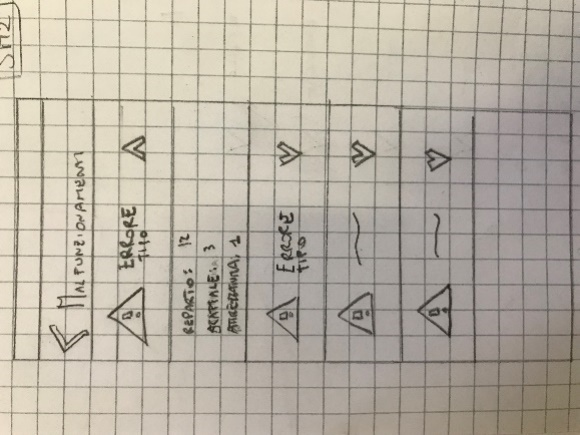 SM2
MALFUNZIONAMENTI
ERRORE
TIPO
REPARTO: 12
SCAFFALE: 3
ATTREZZATURA: 1
ERRORE
TIPO